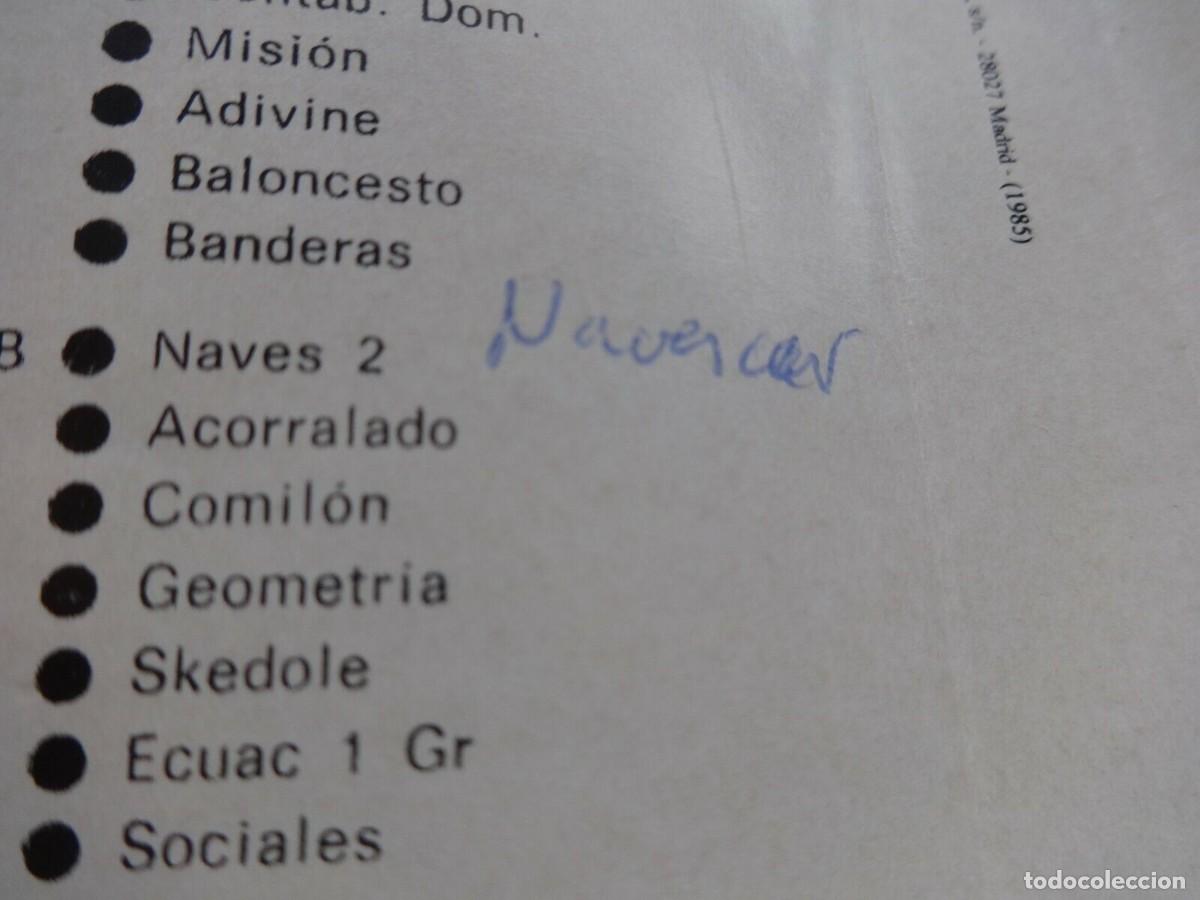 Dom.
Misión
Adivine
Baloncesto
Banderas
B Naves 2
Acorralado
Comilón
Geometria
Skedole
Ecuac 1 Gr
Sociales
, s/n. - 28027 Madrid - (1985)
todocoleccion